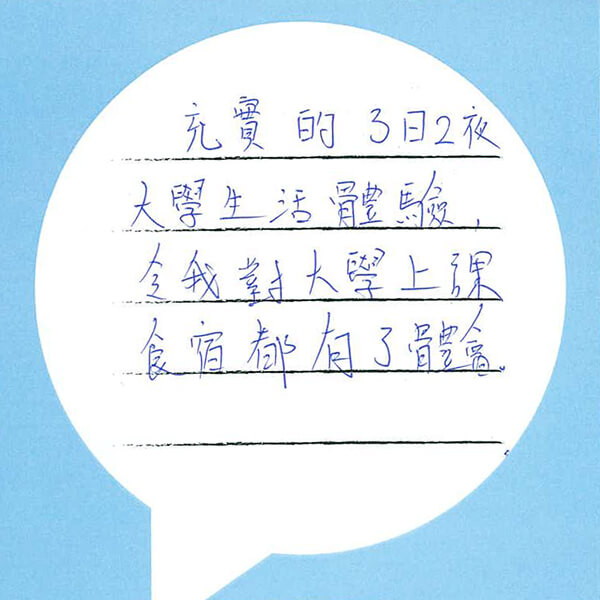 充實的3日2夜
大學生活體驗,
令我對大學上課
食宿都有了體會。